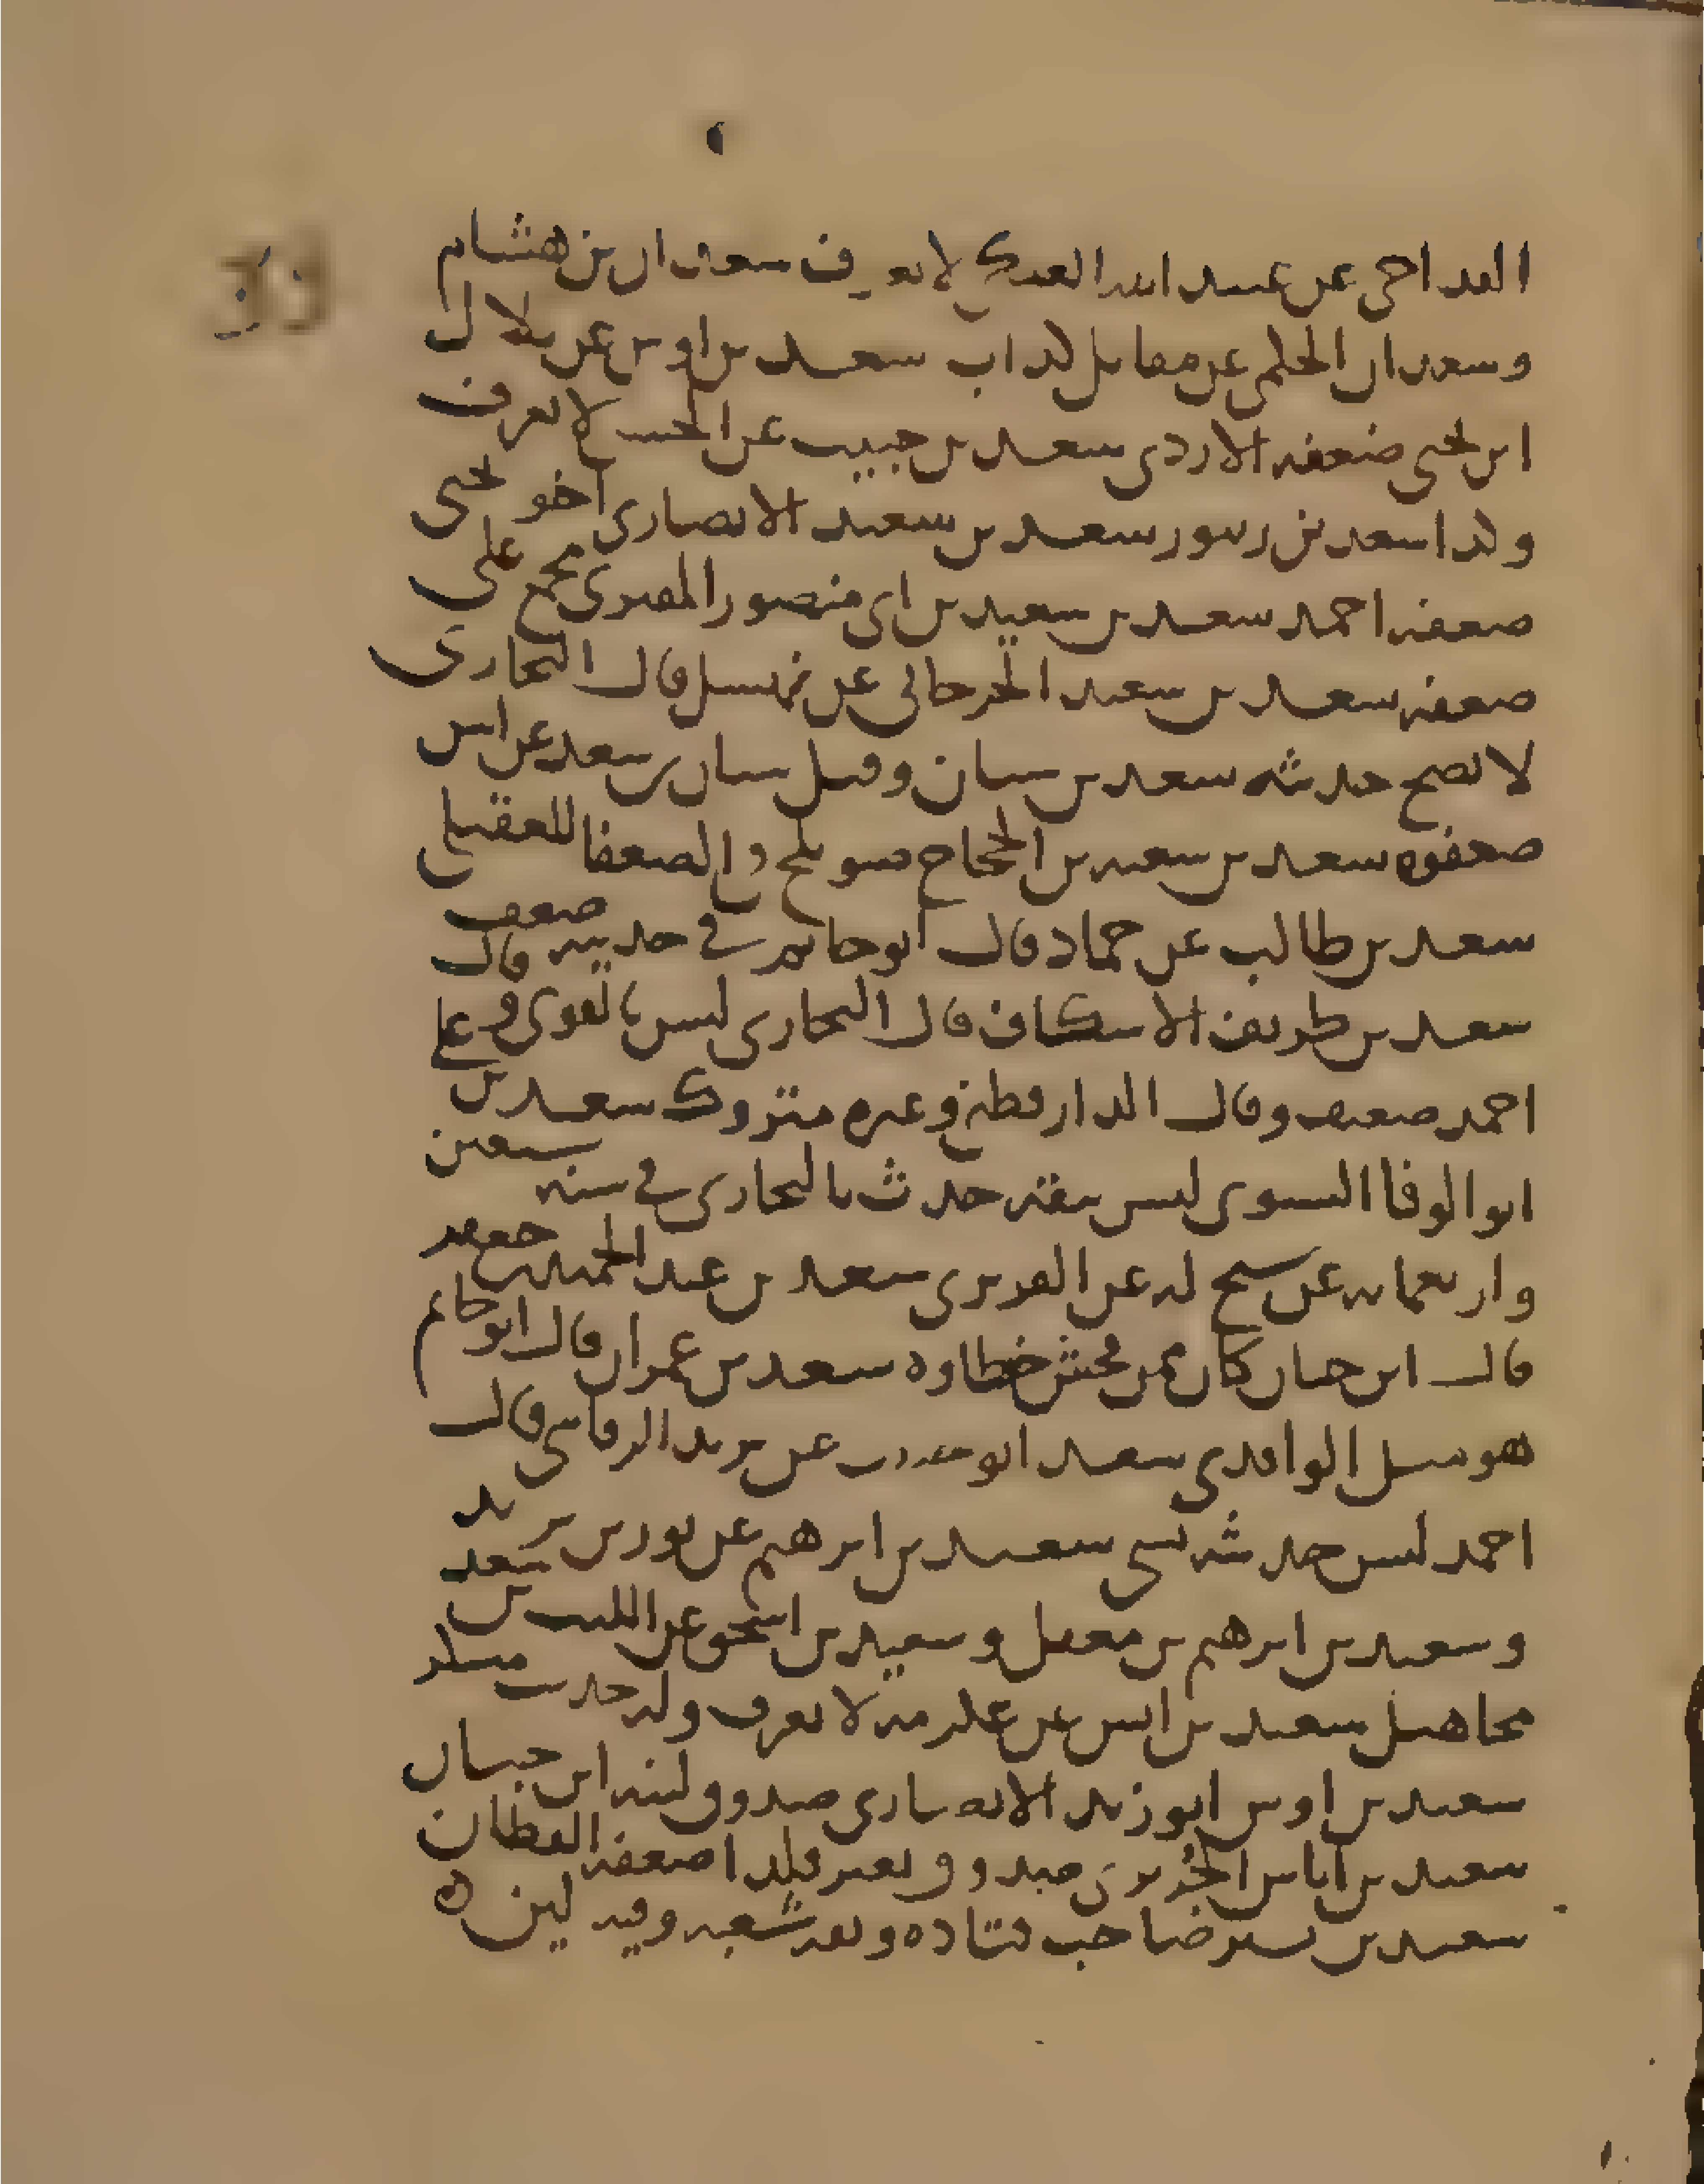 القداحي عن عبيد الله العتكي لا يعرف سعدان بن هشام
وسعدان الحلمي عن مقاتل كذاب سعد بن اوس عن بلال
ابن يحيى ضعفه الازدي سعد بن حبيب عن الحسن لا يعرف
وكذا سعد بن سعد بن سعيد الانصاري اخو يحيى
ضعفه احمد سعد بن سعيد بن ابي منصور المقبري مجمع على
ضعفه سعد بن سعيد الجرجاني عن نهشل قال البخاري
لا يصح حديثه سعد بن سنان وقيل سنان بن سعد عن انس
ضعفوه سعد بن شعبه بن الحجاج صويلح و الضعفا للعقيلي
سعد بن طالب عن حماد قال ابو حاتم في حديثه ضعف
سعد بن طريف الاسكاف قال البخاري ليس بالقوي وقال
احمد ضعيف وقال الدارقطني وغيره متروك سعد بن علي
ابو الوفا النسوي ليس بثقه حدث بالبخاري في سنه سبعين
واربعمايه عن شيخ له عن الفربري سعد بن عبد الحميد بن جعفر
قال ابن حبان كان ممن فحش خطاوه سعد بن عمران قال ابو حاتم
هو مثل الواقدي سعد ابو حبيب عن يزيد الرقاشي قال
احمد ليس حديثه بشي سعيد بن ابرهيم عن ثور بن يزيد
وسعيد بن ابرهيم بن معقل وسعيد بن اسحق عن الليث بن سعد
مجاهيل سعيد بن انس عن عكرمه لا يعرف وله حديث منكر
سعيد بن اوس ابو زيد الانصاري صدوق لينه ابن حبان
سعيد بن اياس الجريري صدوق تغير فلذا ضعفه القطان
سعيد بن بشير صاحب قتاده وثقه شعبه وفيه لين ه